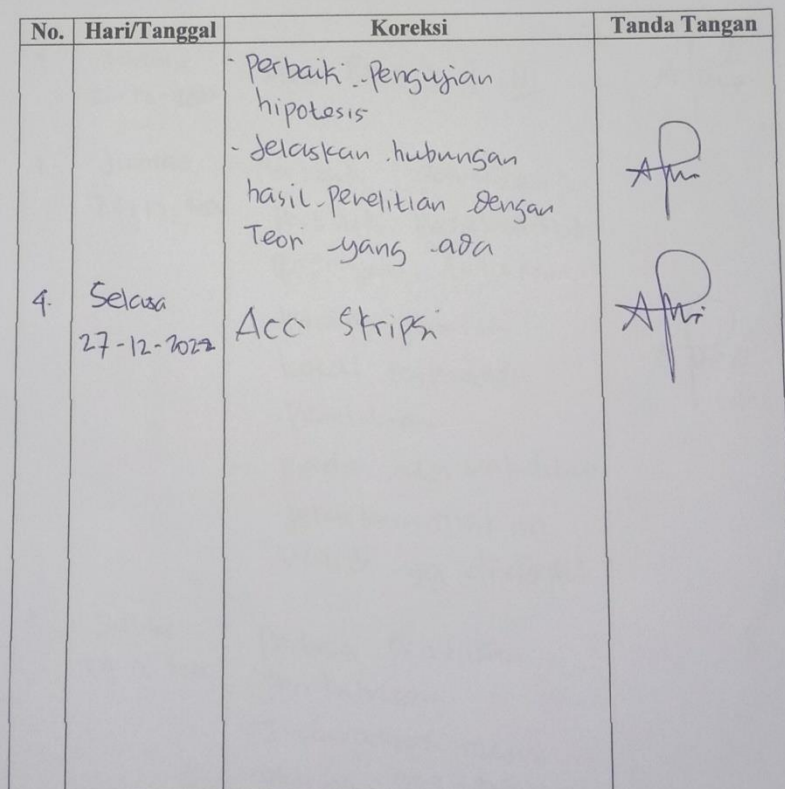 No. Hari/Tanggal Koreksi Tanda Tangan
- Perbaiki Pengujian
hipotesis
- Jelaskan hubungan
hasil penelitian dengan
Teori yang ada
4. Selasa
27-12-2022 Acc Skripsi